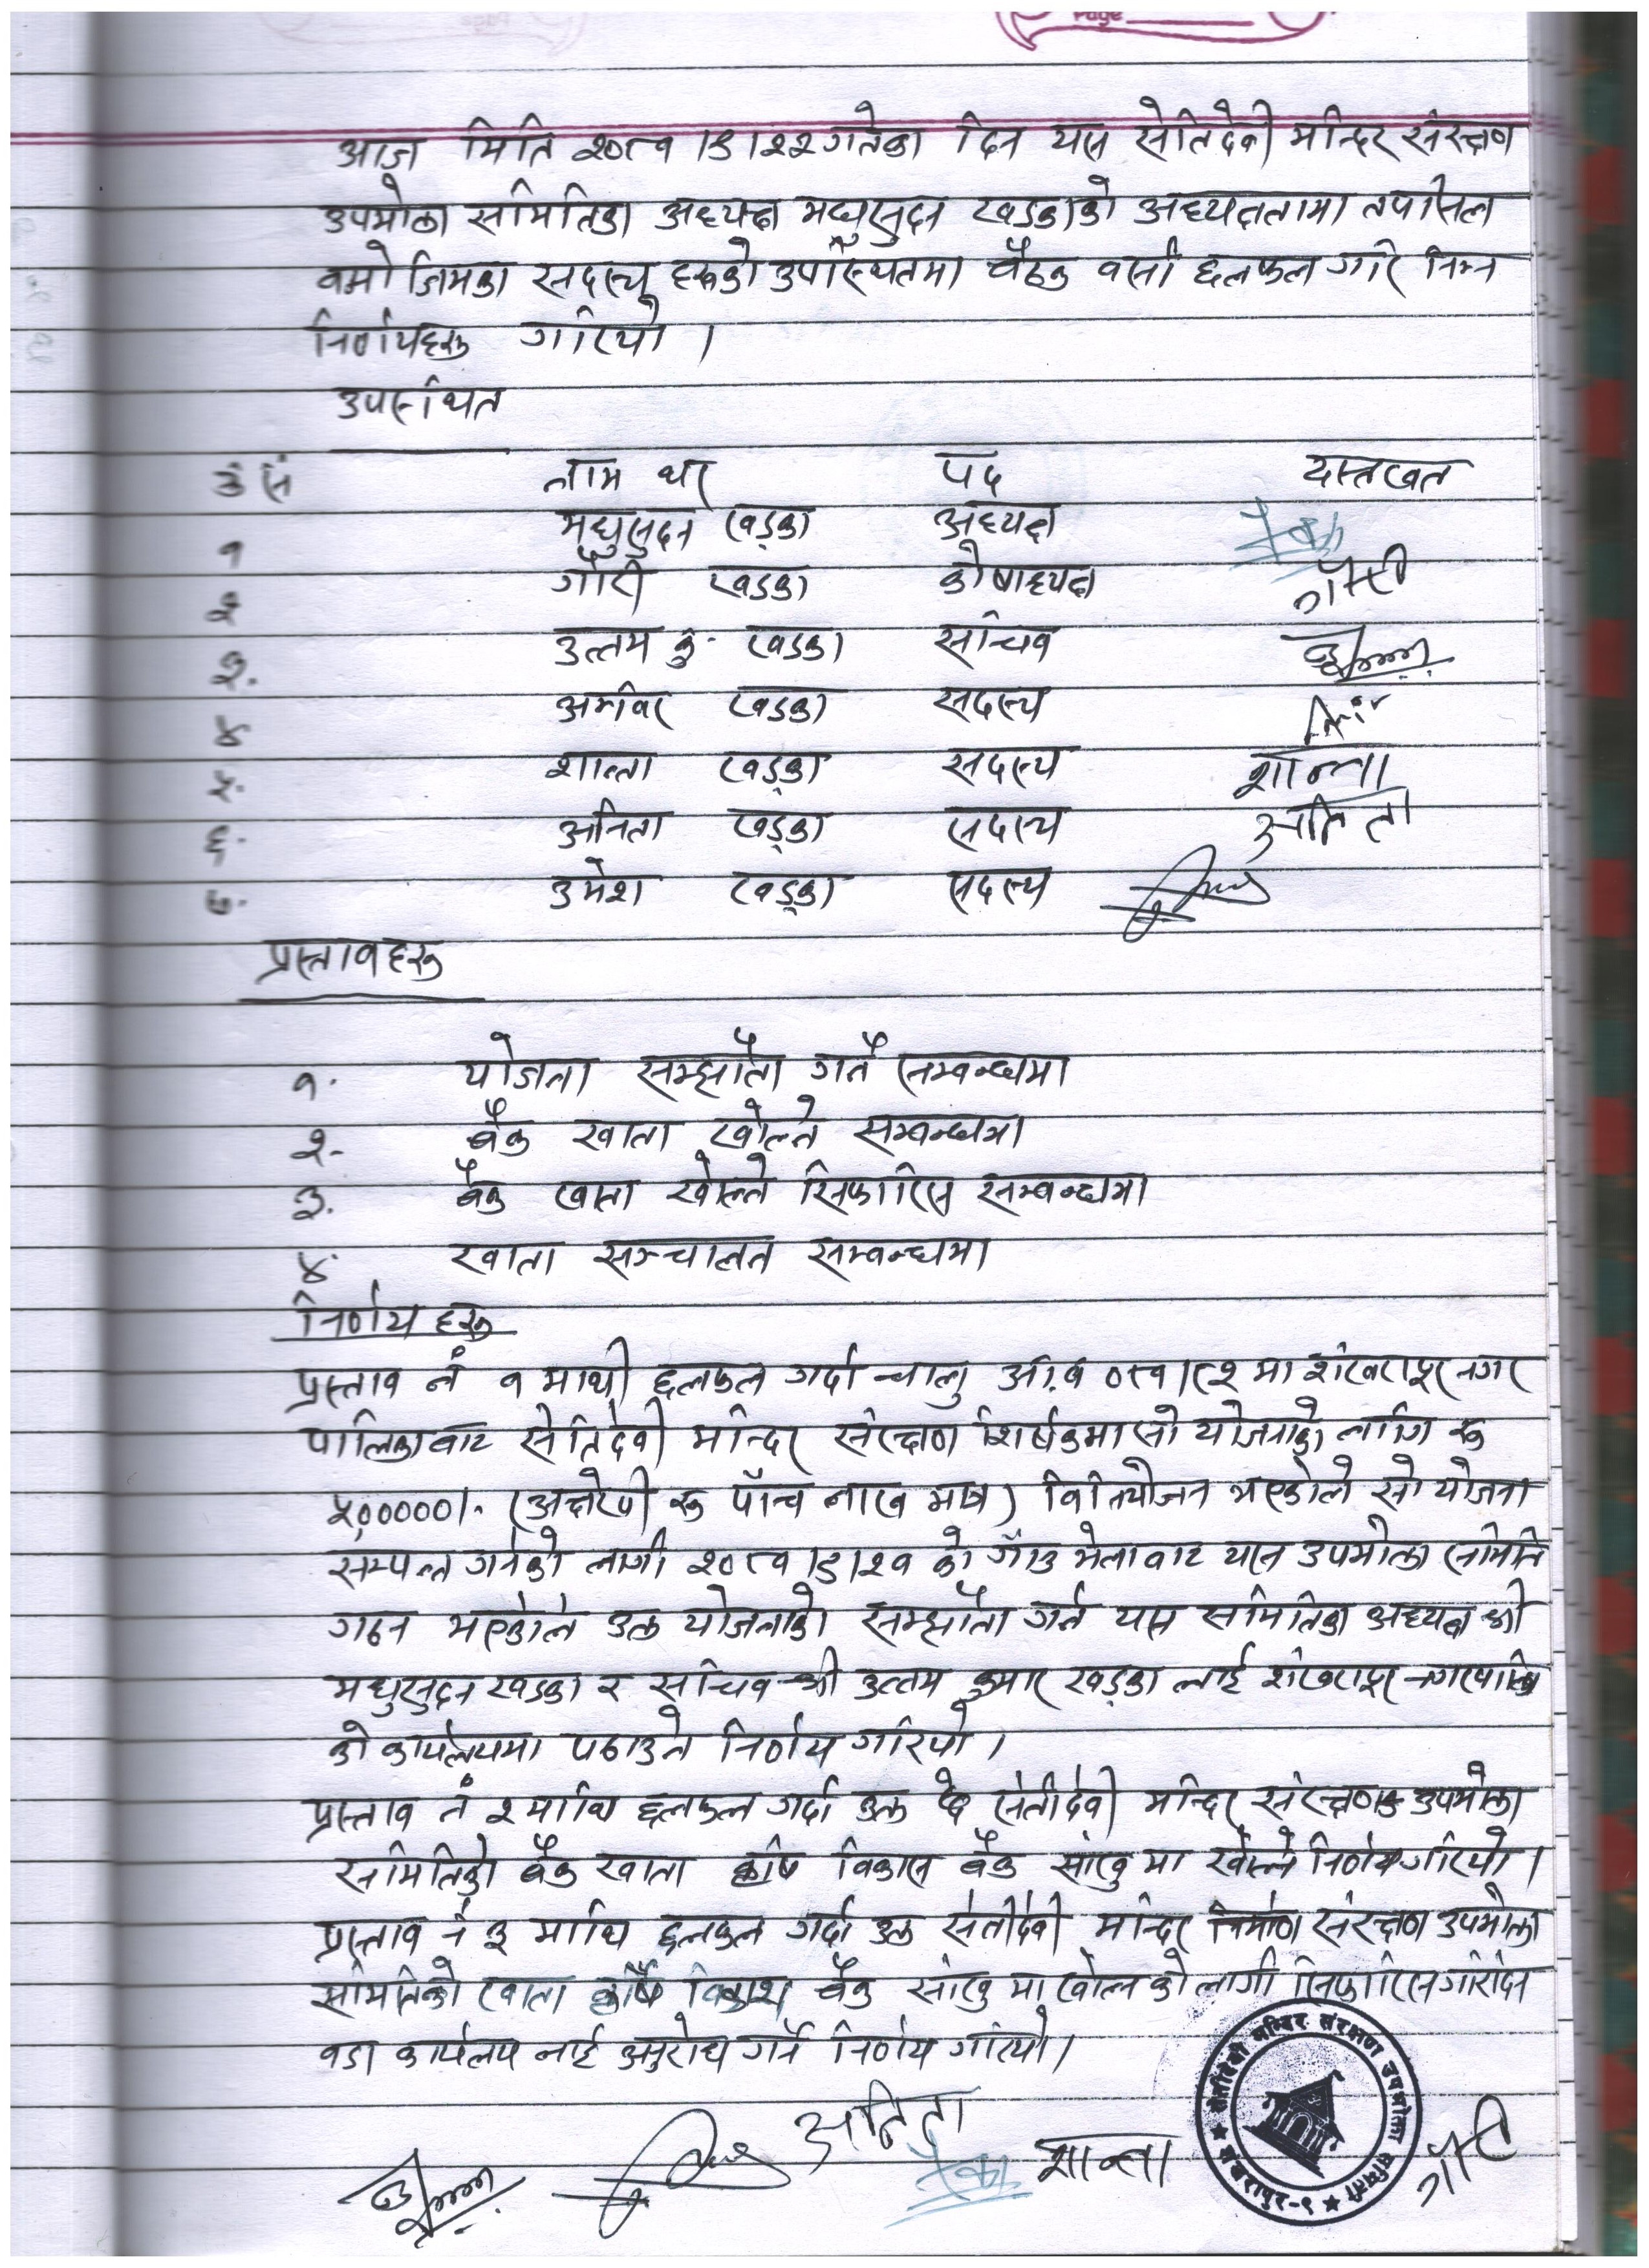 Page
आज मिति २०८१।८।२२ गतेका दिन यस सेतिदेवी मन्दिर संरक्षण
उपभोक्ता समितिका अध्यक्ष मधुसुदन खडकाको अध्यक्षतामा तपसिल
वमोजिमका सदस्य हरुको उपस्थितमा वैठक वसी छलफल गरि निम्न
निर्णयहरु गरियो ।
उपस्थित
क्र सं नाम थर पद दस्तखत
१ मधुसुदन खड्का अध्यक्ष
२ गौरी खडका कोषाध्यक्ष गौरी
३. उत्तम कु. खडका सचिव
४ अमिवर खडका सदस्य
५. शान्ता खड्का सदस्य शान्ता
६. अनिता खड्का सदस्य अनिता
७. उमेश खड्का सदस्य
प्रस्तावहरु
१. योजना सम्झौता गर्ने सम्वन्धमा
२- बैंक खाता खोल्ने सम्वन्धमा
३. बैंक खाता खोल्ने सिफारिस सम्वन्धमा
४. खाता सञ्चालन सम्वन्धमा
निर्णय हरु
प्रस्ताव नं १ माथी छलफल गर्दा चालु आ.व ०८१।८२ मा शंखरापुर नगर
पालिकावाट सेतिदेवी मन्दिर संरक्षण शिर्षकमा सो योजनाको लागि रु
५,०००००।- (अक्षेरुपी रु पाँच लाख मात्र) विनियोजन भएकोले सो योजना
सम्पन्न गर्नको लागी २०८१।८।२१ को गाँउ भेलावाट यस उपभोक्ता समिति
गठन भएकोले उक्त योजनाको सम्झौता गर्न यस समितिका अध्यक्ष श्री
मधुसुदन खडका र सचिव श्री उत्तम कुमार खड्का लाई शंखरापुर नगरपालिका
को कार्यलयमा पठाउने निर्णय गरियो ।
प्रस्ताव नं २ माथि छलफल गर्दा उक्त सेतीदेवी मन्दिर संरक्षण उपभोक्ता
समितिको बैंक खाता कृषि विकास बैंक सांखु मा खोल्ने निर्णय गरियो ।
प्रस्ताव नं ३ माथि छलफल गर्दा उक्त सेतीदेवी मन्दिर निर्माण संरक्षण उपभोक्ता
समितिको खाता कृषि विकाश बैंक सांखु मा खोल्न को लागी सिफारिस गरिदिन
वडा कार्यलय लाई अनुरोध गर्ने निर्णय गरियो ।
अनिता शान्ता गौरी
सेतीदेवी मन्दिर संरक्षण उपभोक्ता समिति
शंखरापुर-३